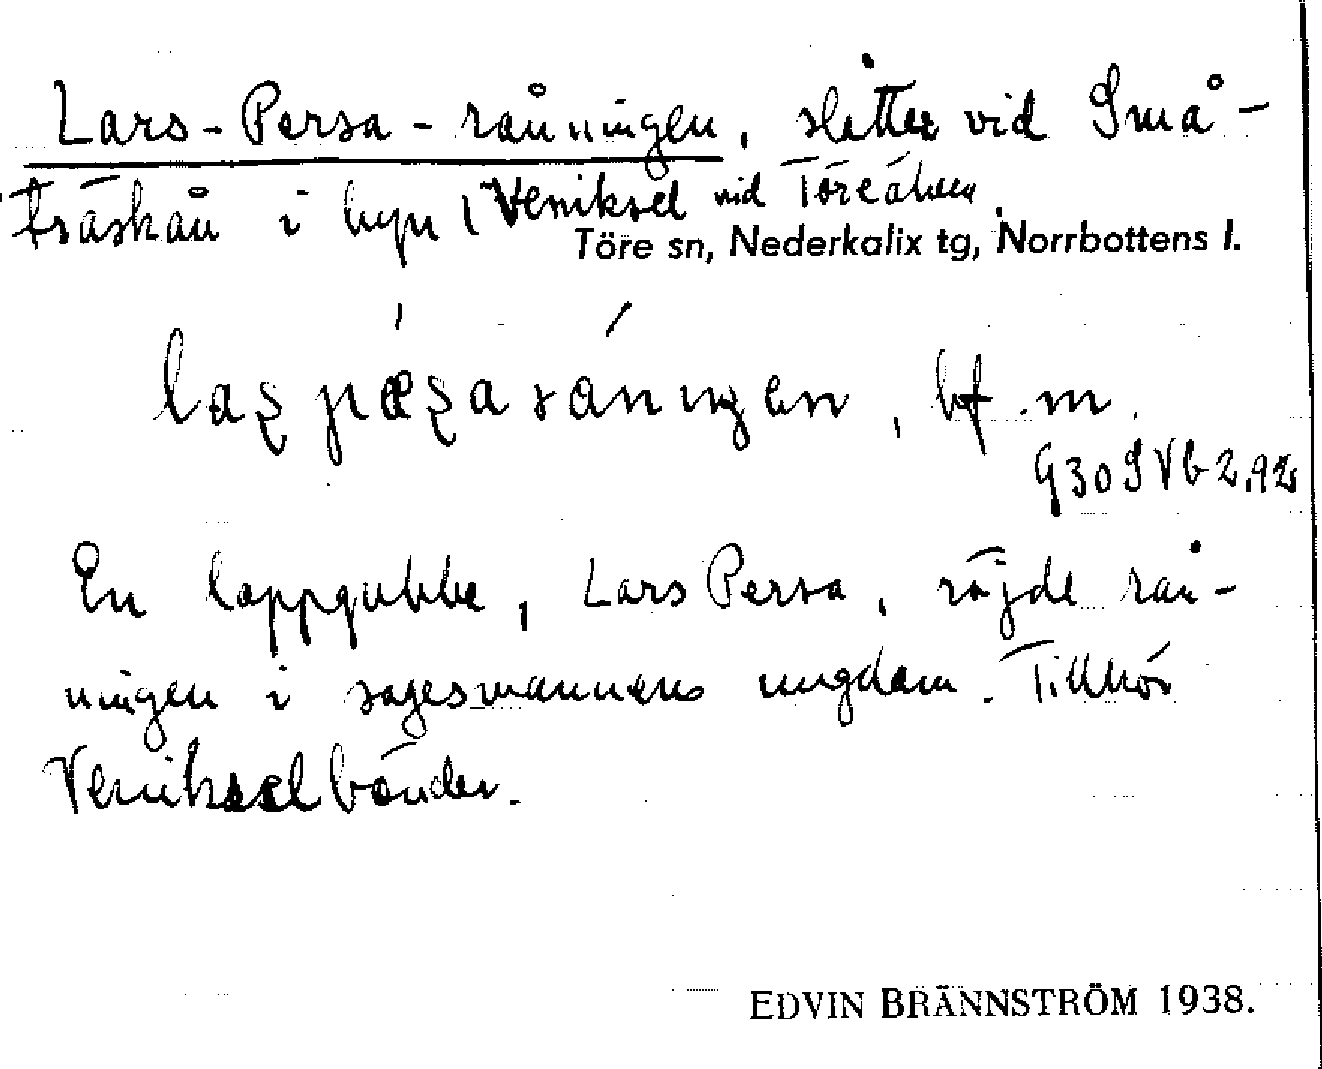 Lars-Persa-råningen, slåtter vid Små-
träskån i byn Veniksel vid Töreälven.
Töre sn, Nederkalix tg, Norrbottens l.
laʂ pæʂa råningen, bf. m.
930 S Vb 2.92
En lappgubbe, Lars Persa, röjde rån-
ningen i sagesmannens ungdom. Tillhör
Veniksel bönder.
EDVIN BRÄNNSTRÖM 1938.